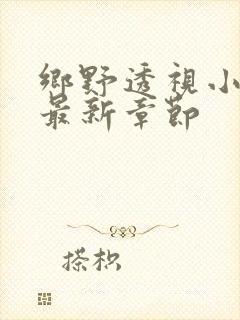 鄉野透視小
最新章節
搽枳